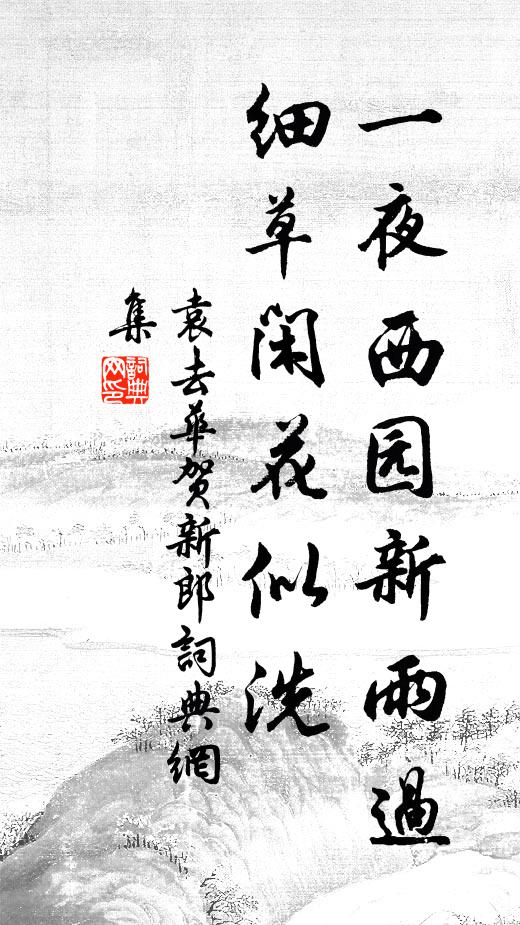 一夜西园新雨過
细草闲花似洗
袁去華贺新郎詞典網
集
詞典网印